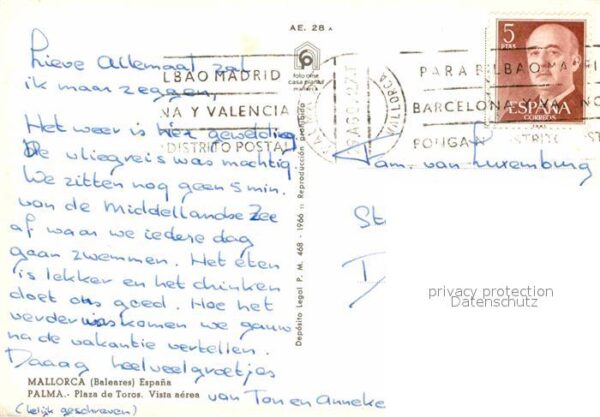 AE. 28 A
Lieve Allemaal zal
ik maar zeggen,
Het weer is hier geweldig.
De vliegreis was machtig.
We zitten nog geen 5 min.
van de Middellandse Zee
af waar we iedere dag
gaan zwemmen. Het eten
is lekker en het drinken
doet ons goed. Hoe het
verder was komen we gauw
na de vakantie vertellen.
Daaag heelveel groetjes
van Ton en Anneke
(lelijk geschreven)
MALLORCA (Baleares) España
PALMA.- Plaza de Toros. Vista aérea
foto cine
casa planas
Depósito Legal P. M. 468 - 1966 :: Reproducción prohibido
LBAO MADRID
NA Y VALENCIA
DISTRITO POSTAL
PARA BILBAO MA
BARCELONA
PONGAN
5
PTAS
ESPAÑA
CORREOS
Fam. van Luxemburg
St
privacy protection
Datenschutz